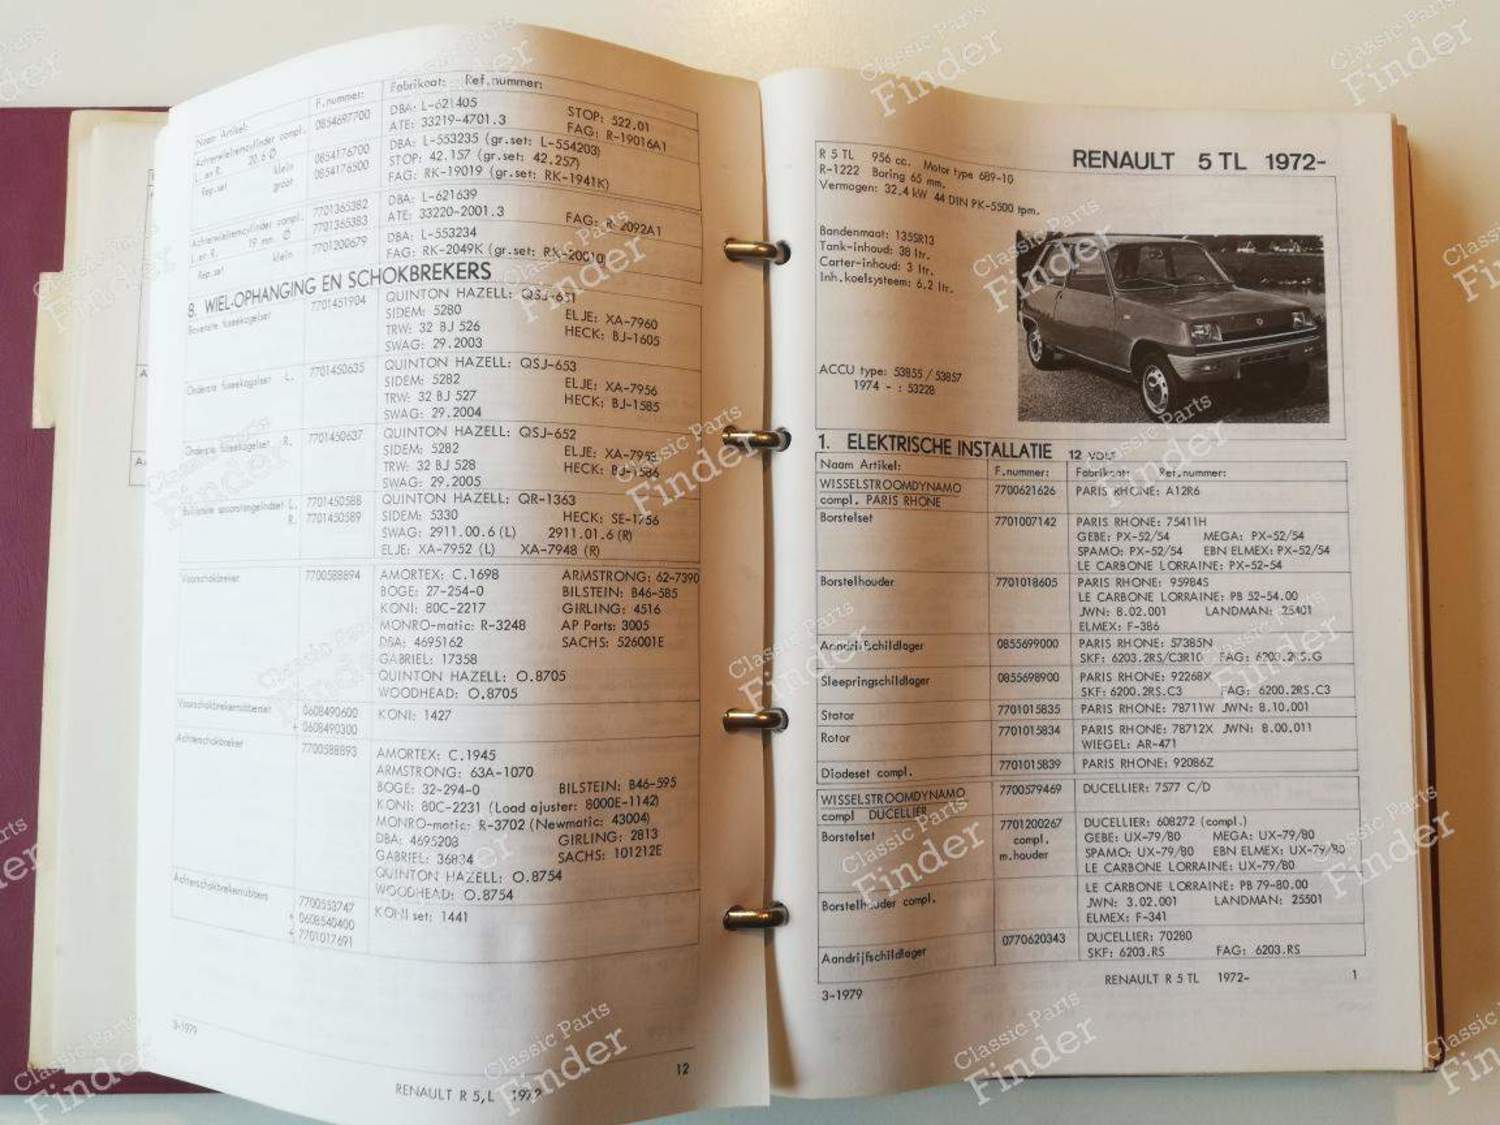 Naam Artikel: F.nummer: Fabrikaat: Ref.nummer:
Achterwielremcylinder compl. 0854697700 DBA: L-621405 STOP: 522.01
L. en R. 20.6 Ø ATE: 33219-4701.3 FAG: R-19016A1
Rep.set klein 0854176700 DBA: L-553235 (gr.set: L-554203)
groot 0854176500 STOP: 42.157 (gr.set: 42.257)
FAG: RK-19019 (gr.set: RK-1941K)
Achterwielremcylinder compl. 7701365382 DBA: L-621639
19 mm Ø 7701365383 ATE: 33220-2001.3 FAG: R-2092A1
L. en R.
Rep.set klein 7701200679 DBA: L-553234
FAG: RK-2049K (gr.set: RK-20010)
8. WIEL-OPHANGING EN SCHOKBREKERS
Bovenste fuseekogelset 7701451904 QUINTON HAZELL: QSJ-651
SIDEM: 5280 ELJE: XA-7960
TRW: 32 BJ 526 HECK: BJ-1605
SWAG: 29.2003
Onderste fuseekogelset L. 7701450635 QUINTON HAZELL: QSJ-653
SIDEM: 5282 ELJE: XA-7956
TRW: 32 BJ 527 HECK: BJ-1585
SWAG: 29.2004
Onderste fuseekogelset R. 7701450637 QUINTON HAZELL: QSJ-652
SIDEM: 5282 ELJE:
TRW: 32 BJ 528 HECK: BJ-1586
SWAG: 29.2005
L. 7701450588 QUINTON HAZELL: QR-1363
R. 7701450589 SIDEM: 5330 HECK: SE-1256
SWAG: 2911.00.6 (L) 2911.01.6 (R)
ELJE: XA-7952 (L) XA-7948 (R)
Voorschokbreker 7700588894 AMORTEX: C.1698 ARMSTRONG: 62-7390
BOGE: 27-254-0 BILSTEIN: B46-585
KONI: 80C-2217 GIRLING: 4516
MONRO-matic: R-3248 AP Parts: 3005
DBA: 4695162 SACHS: 526001E
GABRIEL: 17358
QUINTON HAZELL: O.8705
WOODHEAD: O.8705
Voorschokbrekerrubbers + 0608490600 KONI: 1427
+ 0608490300
Achterschokbreker 7700588893 AMORTEX: C.1945
ARMSTRONG: 63A-1070
BOGE: 32-294-0 BILSTEIN: B46-595
KONI: 80C-2231 (Load ajuster: 8000E-1142)
MONRO-matic: R-3702 (Newmatic: 43004)
DBA: 4695203 GIRLING: 2813
GABRIEL: 36834 SACHS: 101212E
QUINTON HAZELL: O.8754
WOODHEAD: O.8754
Achterschokbrekerrubbers 7700553747 KONI set: 1441
+ 0608540400
+ 7701017691
3-1979 12
RENAULT R 5,L 1972
R 5 TL 956 cc. Motor type 689-10 RENAULT 5 TL 1972-
R-1222 Boring 65 mm.
Vermogen: 32.4 kW 44 DIN PK-5500 tpm.
Bandenmaat: 135SR13
Tank-inhoud: 38 ltr.
Carter-inhoud: 3 ltr.
Inh.koelsysteem: 6,2 ltr.
ACCU type: 53855 / 53857
1974 - : 53228
1. ELEKTRISCHE INSTALLATIE 12 VOLT
Naam Artikel: F.nummer: Fabrikaat: Ref.nummer:
WISSELSTROOMDYNAMO 7700621626 PARIS RHONE: A12R6
compl. PARIS RHONE
Borstelset 7701007142 PARIS RHONE: 75411H
GEBE: PX-52/54 MEGA: PX-52/54
SPAMO: PX-52/54 EBN ELMEX: PX-52/54
LE CARBONE LORRAINE: PX-52-54
Borstelhouder 7701018605 PARIS RHONE: 95984S
LE CARBONE LORRAINE: PB 52-54.00
JWN: 8.02.001 LANDMAN: 25401
ELMEX: F-386
Aandrijfschildlager 0855699000 PARIS RHONE: 57385N
SKF: 6203.2RS/C3R10 FAG: 6203.2RS.G
Sleepringschildlager 0855698900 PARIS RHONE: 92268X
SKF: 6200.2RS.C3 FAG: 6200.2RS.C3
Stator 7701015835 PARIS RHONE: 78711W JWN: 8.10.001
Rotor 7701015834 PARIS RHONE: 78712X JWN: 8.00.011
WIEGEL: AR-471
Diodeset compl. 7701015839 PARIS RHONE: 92086Z
WISSELSTROOMDYNAMO 7700579469 DUCELLIER: 7577 C/D
compl DUCELLIER
Borstelset 7701200267 DUCELLIER: 608272 (compl.)
compl. GEBE: UX-79/80 MEGA: UX-79/80
m.houder SPAMO: UX-79/80 EBN ELMEX: UX-79/80
LE CARBONE LORRAINE: UX-79/80
Borstelhouder compl. LE CARBONE LORRAINE: PB 79-80.00
JWN: 3.02.001 LANDMAN: 25501
ELMEX: F-341
Aandrijfschildlager 0770620343 DUCELLIER: 70280
SKF: 6203.RS FAG: 6203.RS
RENAULT R 5 TL 1972- 1
3-1979
Classic Parts
Finder